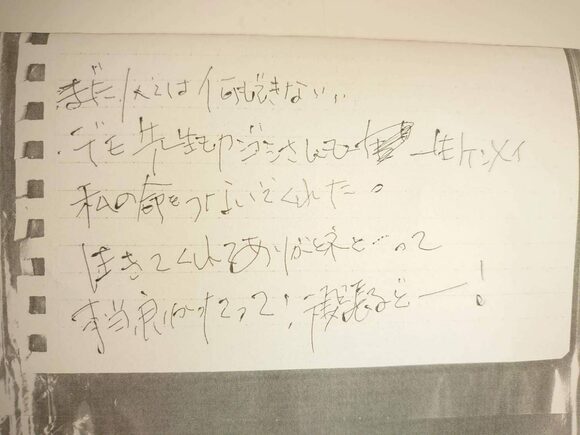 まだ1人では何もできない、、
デモ先生もカンゴシさんも 一生ケンメイ
私の命をつないでくれた。
生きてくれてありがとネと…って
本当良かったって!頑張るぞー!